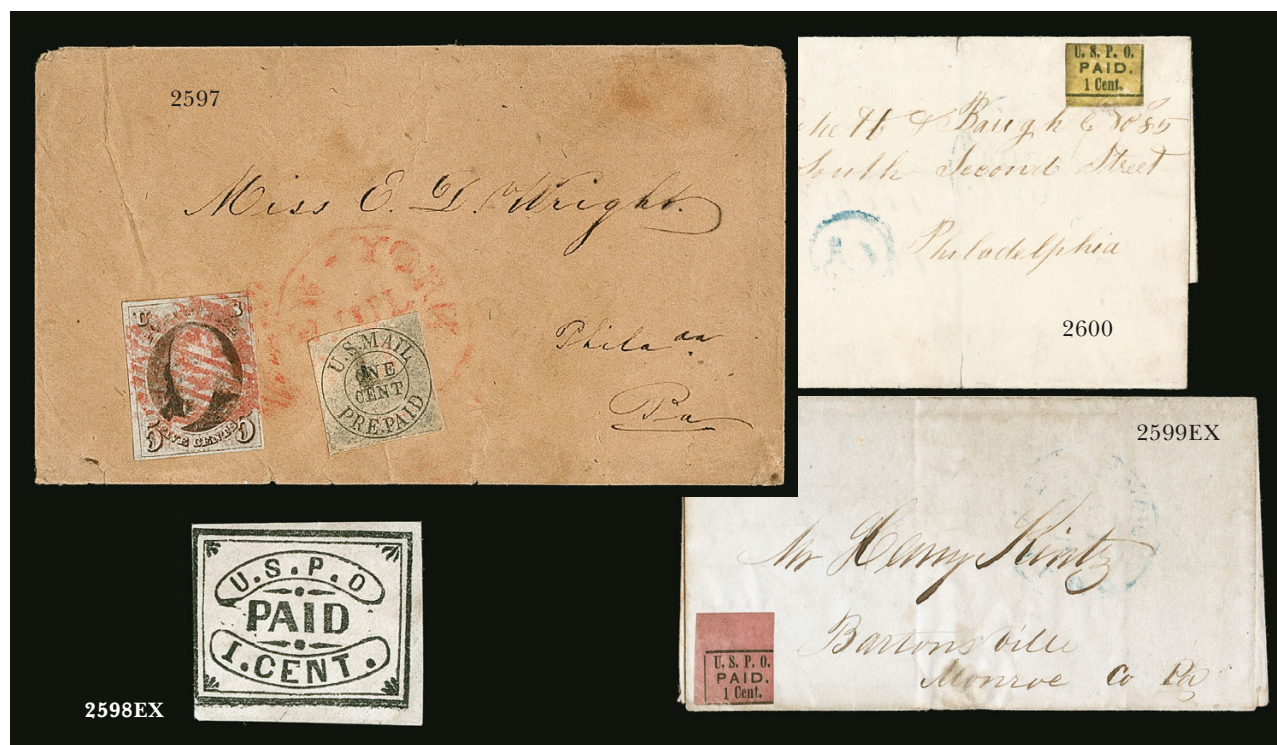 2597
Miss E. D. Wright.
NEW-YORK
JUL
U S
FIVE CENTS
5 5
U.S.MAIL
ONE
CENT
PRE-PAID
Phila da
Pa
U. S. P. O.
PAID.
1 Cent.
& Baugh No 85
South Second Street
Philadelphia
2600
2599EX
Mr Henry Kintz
Bartonsville
Monroe Co Pa
U. S. P. O.
PAID.
1 Cent.
U.S.P.O
PAID
1.CENT.
2598EX